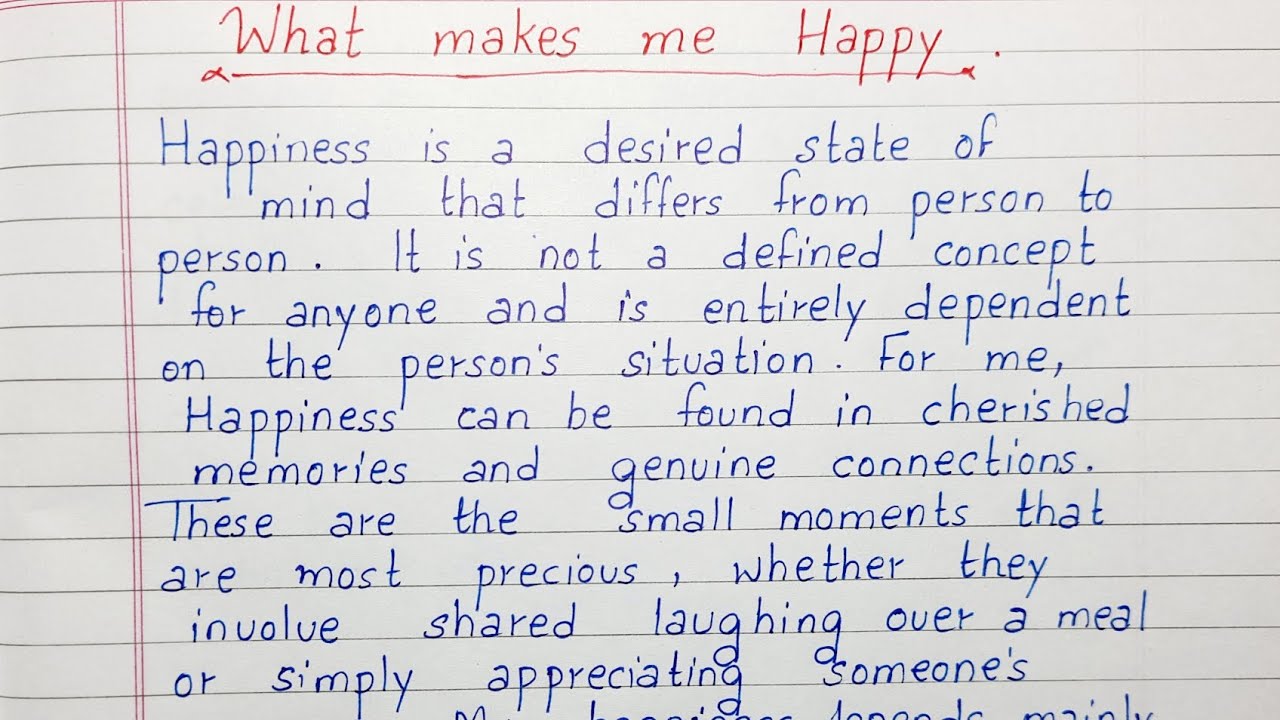 What makes me Happy.
Happiness is a desired state of
mind that differs from person to
person. It is not a defined concept
for anyone and is entirely dependent
on the person's situation. For me,
Happiness can be found in cherished
memories and genuine connections.
These are the small moments that
are most precious, whether they
involve shared laughing over a meal
or simply appreciating someone's
My happiness depends mainly